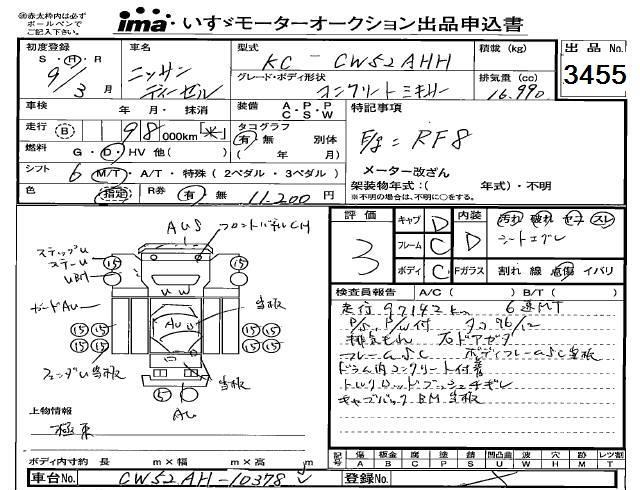 ㊟赤太枠内は必ず
ボールペンで
ご記入下さい。
ima いすゞモーターオークション出品申込書
初度登録 車名 型式 積載(kg) 出品No.
S・H・R 9/3月 ニッサン ディーゼル KC-CW52AHH
3455
グレード・ボディ形状 排気量(cc)
コンクリートミキサー 16,990
車検 年 月・抹消 装備 A・P・P C・S・W 特記事項
走行 B 98 000km 米 タコグラフ 有 無 別体 E/g=RF8
燃料 G・D・HV 他( ) ( 年 月)
シフト 6 M/T・A/T・特殊(2ペダル・3ペダル) メーター改ざん
色 指定 R券 有 無 11,200円 架装物年式:( 年式)・不明
※不明の場合は、不明に○をする。
評価 キャブ D 内装 汚れ 破れ コゲ スレ
3 フレーム C D シートエグレ
ボディ C Fガラス 割れ 線 飛傷 イバリ
AUS フロントパネルCH
ステップU
ステーU
UBM
ガードAU
フェンダU当板
当板
当板
AU
AU
VW
⑮ ⑮
⑮⑮ ⑮⑮
⑮⑮ ⑮⑮
⑤
検査員報告 A/C( ) B/T( )
走行97142km 6速MT
P/S, P/W付 タコ96/12
排気もれ 右ドアガタ
フレームSC ボディフレームSC当板
ドラム内コンクリート付着
トルクロッドブッシュチギレ
キャブバックBM当板
上物情報
極東
ボディ内寸約 長 m×幅 m×高 m
記号 傷 板金 腐 塗 錆 凹凸曲 波 穴 跡 レツ割
A B C P S U W H M T
車台No. CW52AH-10378 登録No.